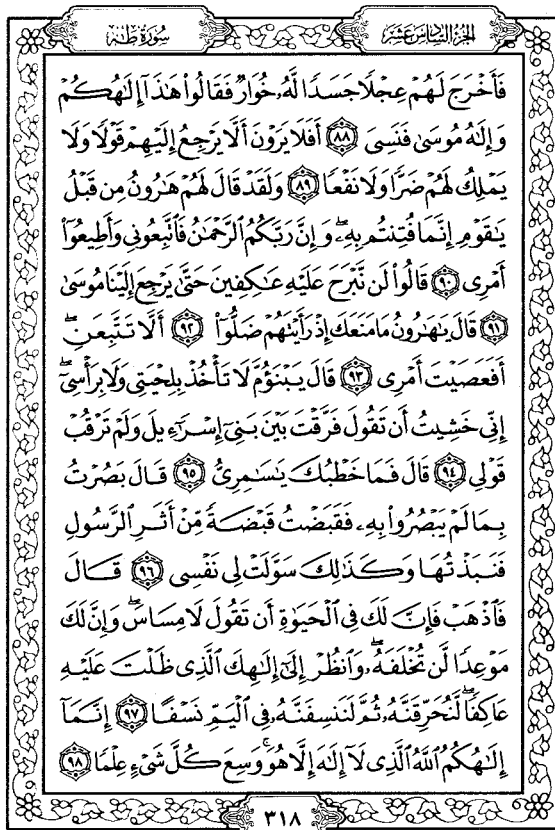 سُورَةُ طٰهٰ
الجُزءُ السَّادِسَ عَشَرَ
فَأَخْرَجَ لَهُمْ عِجْلًا جَسَدًا لَّهُۥ خُوَارٌ فَقَالُوا۟ هَٰذَآ إِلَٰهُكُمْ
وَإِلَٰهُ مُوسَىٰ فَنَسِىَ ٨٨ أَفَلَا يَرَوْنَ أَلَّا يَرْجِعُ إِلَيْهِمْ قَوْلًا وَلَا
يَمْلِكُ لَهُمْ ضَرًّا وَلَا نَفْعًا ٨٩ وَلَقَدْ قَالَ لَهُمْ هَٰرُونُ مِن قَبْلُ
يَٰقَوْمِ إِنَّمَا فُتِنتُم بِهِۦ ۖ وَإِنَّ رَبَّكُمُ ٱلرَّحْمَٰنُ فَٱتَّبِعُونِى وَأَطِيعُوٓا۟
أَمْرِى ٩٠ قَالُوا۟ لَن نَّبْرَحَ عَلَيْهِ عَٰكِفِينَ حَتَّىٰ يَرْجِعَ إِلَيْنَا مُوسَىٰ
٩١ قَالَ يَٰهَٰرُونُ مَا مَنَعَكَ إِذْ رَأَيْتَهُمْ ضَلُّوٓا۟ ٩٢ أَلَّا تَتَّبِعَنِ ۖ
أَفَعَصَيْتَ أَمْرِى ٩٣ قَالَ يَبْنَؤُمَّ لَا تَأْخُذْ بِلِحْيَتِى وَلَا بِرَأْسِىٓ ۖ
إِنِّى خَشِيتُ أَن تَقُولَ فَرَّقْتَ بَيْنَ بَنِىٓ إِسْرَٰٓءِيلَ وَلَمْ تَرْقُبْ
قَوْلِى ٩٤ قَالَ فَمَا خَطْبُكَ يَٰسَٰمِرِىُّ ٩٥ قَالَ بَصُرْتُ
بِمَا لَمْ يَبْصُرُوا۟ بِهِۦ فَقَبَضْتُ قَبْضَةً مِّنْ أَثَرِ ٱلرَّسُولِ
فَنَبَذْتُهَا وَكَذَٰلِكَ سَوَّلَتْ لِى نَفْسِى ٩٦ قَالَ
فَٱذْهَبْ فَإِنَّ لَكَ فِى ٱلْحَيَوٰةِ أَن تَقُولَ لَا مِسَاسَ ۖ وَإِنَّ لَكَ
مَوْعِدًا لَّن تُخْلَفَهُۥ ۖ وَٱنظُرْ إِلَىٰٓ إِلَٰهِكَ ٱلَّذِى ظَلْتَ عَلَيْهِ
عَاكِفًا ۖ لَّنُحَرِّقَنَّهُۥ ثُمَّ لَنَنسِفَنَّهُۥ فِى ٱلْيَمِّ نَسْفًا ٩٧ إِنَّمَآ
إِلَٰهُكُمُ ٱللَّهُ ٱلَّذِى لَآ إِلَٰهَ إِلَّا هُوَ ۚ وَسِعَ كُلَّ شَىْءٍ عِلْمًا ٩٨
٣١٨